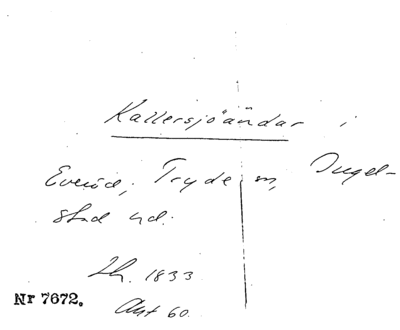 Kallersjöändar i
Everöd, Tryde sn, Ingel-
stad hd.
Lh. 1833
Nr 7672.
Akt 60.